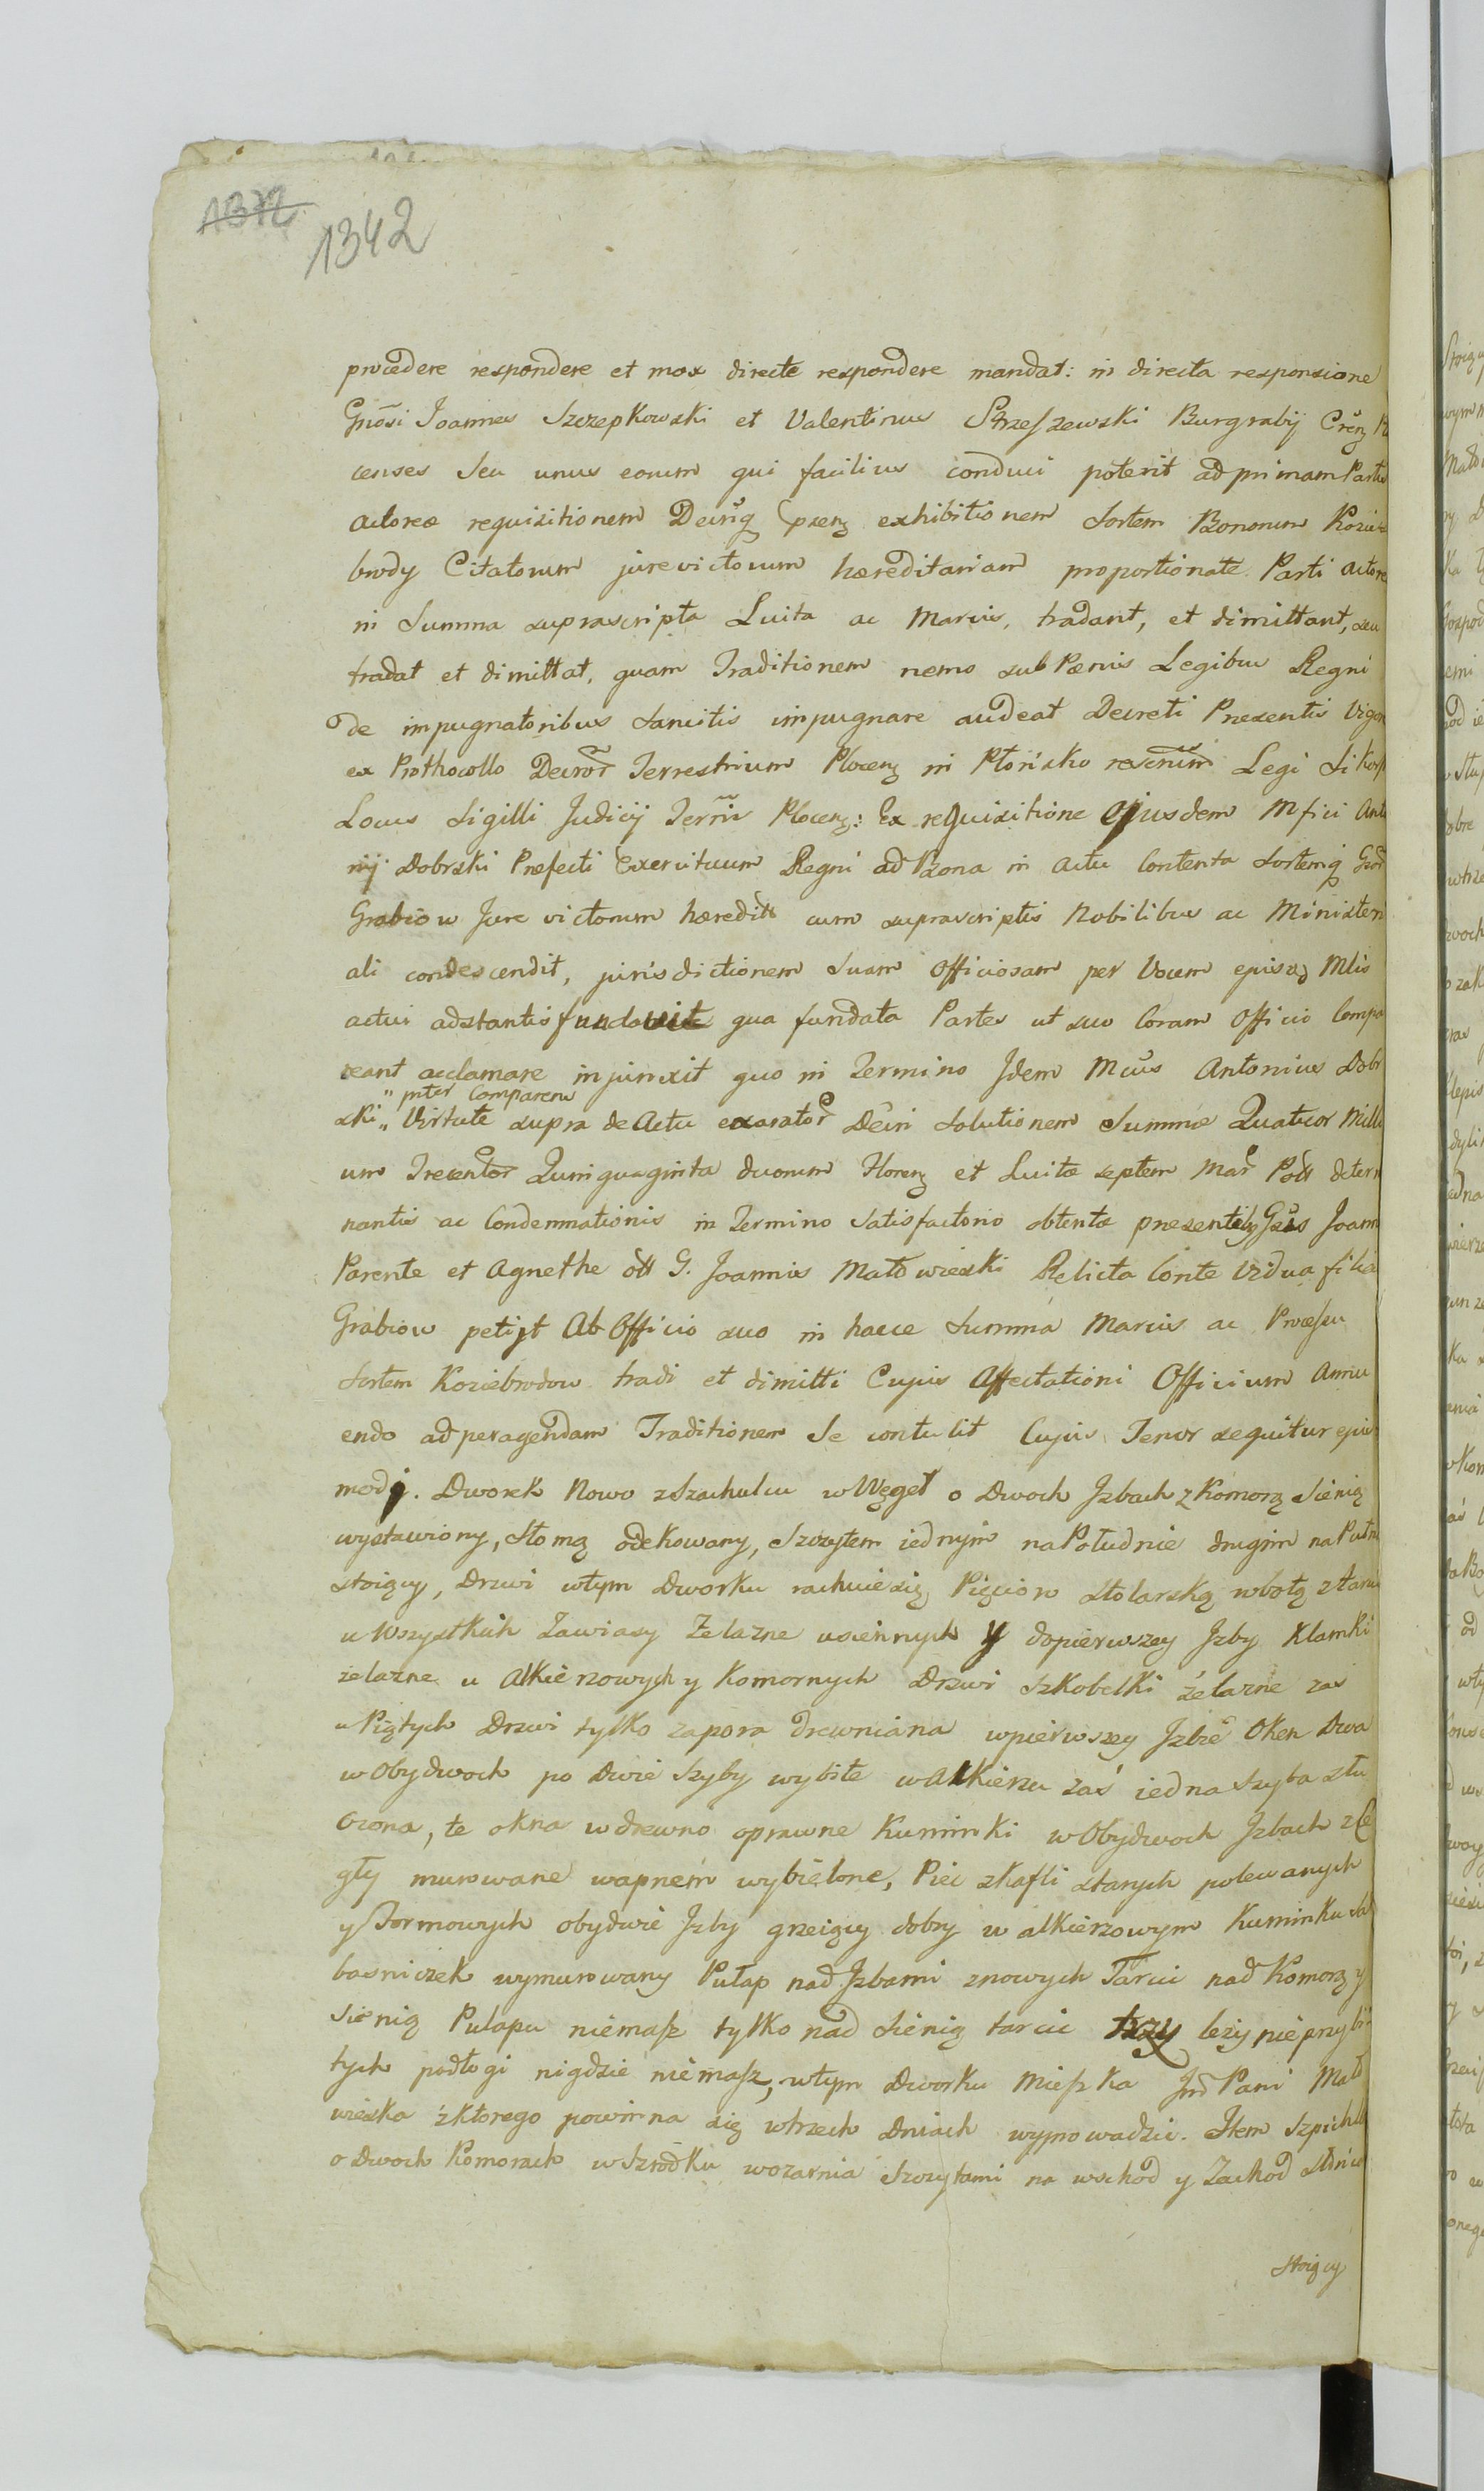 1342
1342
procedere respondere et mox directe respondere mandat: in directa responsione
Gnosi Joannes Szczepkowski et Valentinus Strzeszewski Burgrabij
censes Seu unus eorum qui facilius conduci poterit ad primam Partis
actoreæ requisitionem exhibitionem Sortem Bonorum Kozie
brody Citatorum jurevictorum hæreditariam proportionate Parti actore
in Summa suprascripta Luita ac Marcis, tradant, et dimittant, seu
tradat et dimittat, quam Traditionem nemo sub Pænis Legibus Regni
de impugnatoribus Sancitis impugnare audeat Decreti Presentis Vigore
ex Prothocollo Terrestrium Plocens in Płońsko Legi
Locus Sigilli Judicij Plocens: Ex requisitione ejusdem Mfici Anto
nij Dobrski Præfecti Exercituum Regni ad Bona in actu Contenta Sortemq
Grabiow Jure victorum hæredit cum suprascriptis Nobilibus ac Ministeri
ali condescendit, jurisdictionem Suam Officiosam per Vocem ejusd Mlis
actui adstantis fundavit qua fundata Partes ut suo Coram Officio Compa
reant acclamare injunxit quo in Termino Jdem Mcus Antonius Dobr
" Comparens
ski " Virtute supra de Actu exarator Decri Solutionem Summæ Quatuor Milli
um Trecentor Quinquaginta duorum Floren et Luitæ septem Mar determi
nantis ac Condemnationis in Termino Satisfactorio obtentæ Joann
Parente et Agnethe G. Joannis Małowieski Relicta Conte Vidua filia
Grabiow petijt Ab Officio suo in hacce Summa Marcis ac Processu
Sortem Koziebrodow tradi et dimitti Cujus Affectationi Officium Annu
endo ad peragendam Traditionem Se contulit Cujus Tenor sequitur ejus
modi. Dworek Nowo z Szachulcu w Węgeł o Dwoch Jzbach z Komorą Sienią
wystawiony, Słomą odekowany, Szczytem iednym na Południe drugim na Pułn
stoiący, Drzwi wtym Dworku rachuie się Pięcioro stolarską robotą z tarcic
u Wszystkich Zawiasy Zelazne usiennych y dopierwszey Jzby Klamki
zelazne u Alkierzowych y Komornych Drzwi Szkobelki żelazne zas
u Piątych Drzwi tylko zapora drewniana wpierwszey Jzbie Oken Dwa
w Obydwoch po Dwie Szyby wybite w Alkierzu zaś iedna Szyba stłu
czona, te okna w drewno oprawne Kuminki w Obydwoch Jzbach z Ce
gły murowane wapnem wybielone, Piec zkafli starych polewanych
y Formowych obydwie Jzby grzeiący dobry w alkierzowym Kuminku
basniczek wymurowany Pułap nad Jzbami znowych Tarcic nad Komorą y
Sienią Pulapu niemasz tylko nad Sienią tarcic trzy leży nieprzybi
tych podłogi nigdzie niemasz, wtym Dworku Mieszka Jmć Pani Mało
wieska zktorego powinna się wtrzech Dniach wyprowadzić. Jtem Szpichlerz
o Dwoch Komorach w Szrodku wozarnia Szczytami na wschod y Zachod Słońca
stoiący